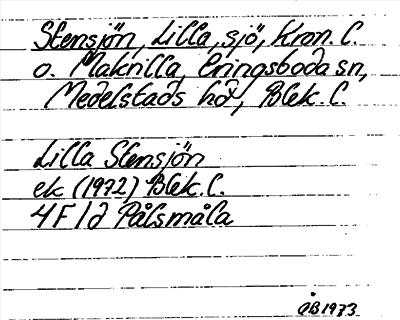 Stensjön, Lilla, sjö, Kron. l.
o. Makrilla, Eringsboda sn,
Medelstads hd, Blek. l.
Lilla Stensjön
ek (1972) Blek. l.
4F1d Pålsmåla
ÅB1973